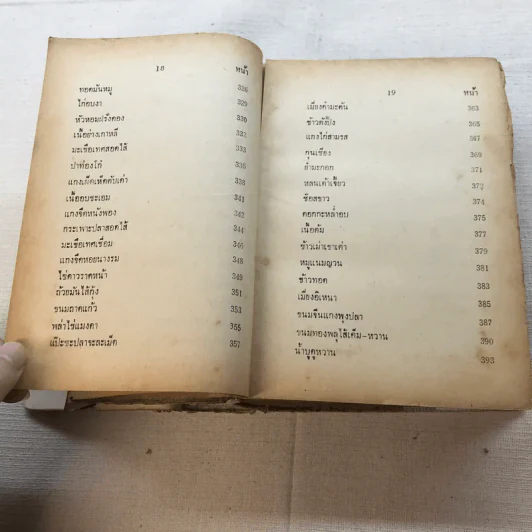 18 หน้า
ทอดมันหมู 326
ไก่อบงา 329
หัวหอมฝรั่งดอง 330
เนื้อย่างเกาหลี 332
มะเขือเทศสอดไส้ 333
ปาท่องโก๋ 336
แกงเผ็ดเห็ดตับเต่า 338
เนื้ออบชะเอม 341
แกงจืดหนังพอง 342
กระเพาะปลาสอดไส้ 344
มะเขือเทศเชื่อม 346
แกงจืดหอยนางรม 348
ไข่ดาวราดหน้า 349
ถ้วยมันไส้กุ้ง 351
ขนมถาดแก้ว 353
พล่าไข่แมงดา 355
แป๊ะซะปลาจะละเม็ด 357
19 หน้า
เมี่ยงคำมะดัน 363
ข้าวตังปิ้ง 365
แกงไก่สามรส 367
กุนเชียง 369
ยำมะกอก 371
หลนเต้าเจี้ยว 372
ซ้อสขาว 374
ดอกกะหล่ำอบ 375
เนื้อตุ๋น 377
ข้าวเม่าเขาเต่า 379
หมูแนมญวน 381
ข้าวทอด 383
เมี่ยงอิเหนา 385
ขนมจีนแกงพุงปลา 387
ขนมทองพลุไส้เค็ม-หวาน 390
น้ำบูดูหวาน 393